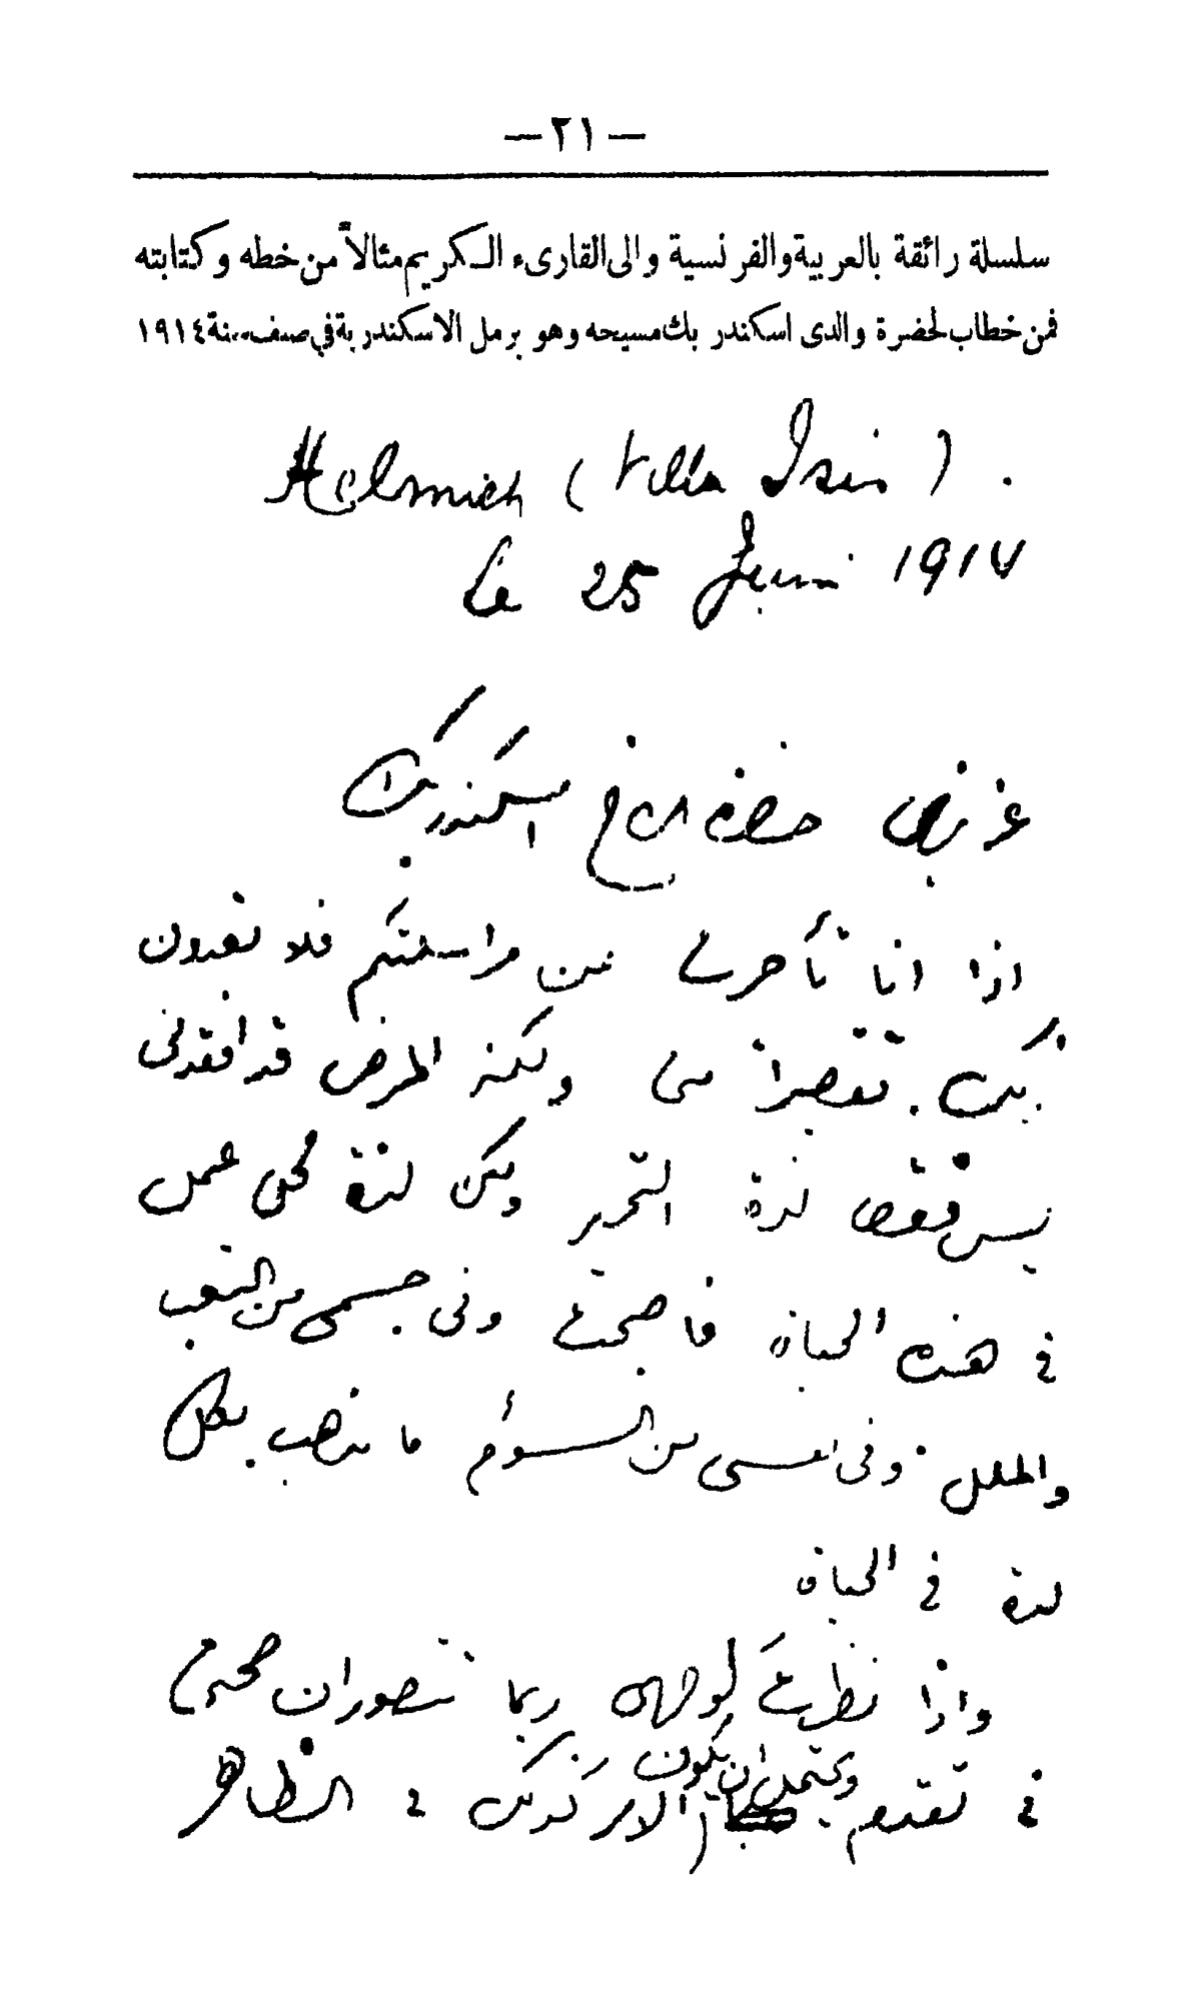 — ٢١ —
سلسلة رائقة بالعربية والفرنسية والى القارىء الكريم مثالاً من خطه وكتابته
فمن خطاب لحضرة والدى اسكندر بك مسيحه وهو برمل الاسكندرية في صيف سنة ١٩١٤
Helmieh (Villa Isis).
Le 25 Juin 1914
عزيزى حضرة الاخ اسكندر بك
اذا انا تأخرت عن مراسلتكم فلا تعدون
ذلك تقصيراً منى ولكنه المرض قد افقدنى
ليس فقط لذة التحرير ولكن لذة كل عمل
فى هذه الحياة فاصبحت وفى جسمى من التعب
والملل وفى نفسى من السؤم ما يذهب بكل
لذة فى الحياة
واذا نظرت لوجهى ربما تتصور ان صحتى
فى تقدم ويحتمل ان يكون الامر كذلك فى الظاهر